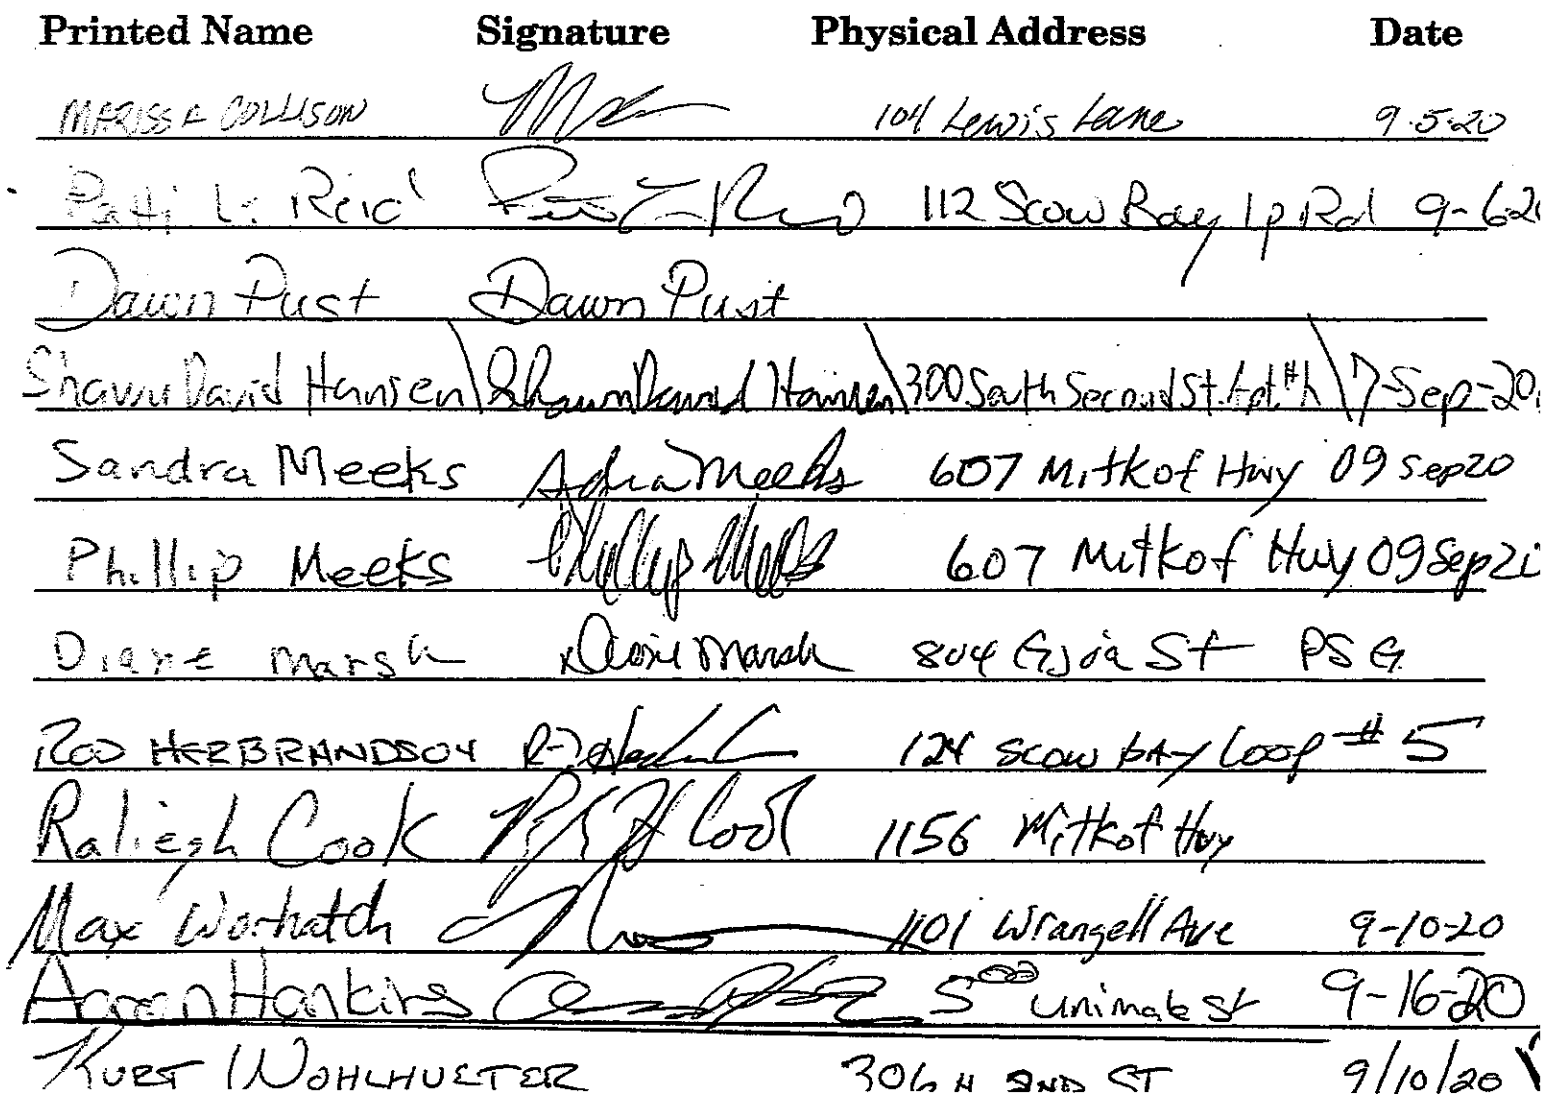 Printed Name Signature Physical Address Date
MARISSA COLLISON 104 Lewis Lane 9-5-20
Patti L. Reid 112 Scow Bay Lp Rd 9-6-20
Dawn Pust Dawn Pust
Shawn David Hansen \ Shawn David Hansen \ 300 South Second St. Apt. # \ 7-Sep-20
Sandra Meeks Meeks 607 Mitkof Hwy 09 Sep20
Phillip Meeks Phillip Meeks 607 Mitkof Hwy 09 Sep
Diane Marsh x Diane Marsh 804 Gjoa St PSG
ROD HERBRANDSON 124 SCOW BAY Loop # 5
Raliegh Cook Cook 1156 Mitkof Hwy
Max Worhatch 1101 Wrangell Ave 9-10-20
Aaron Hankins 500 Unimak St 9-16-20
KURT WOHLHUETER 306 N 2ND ST 9/10/20